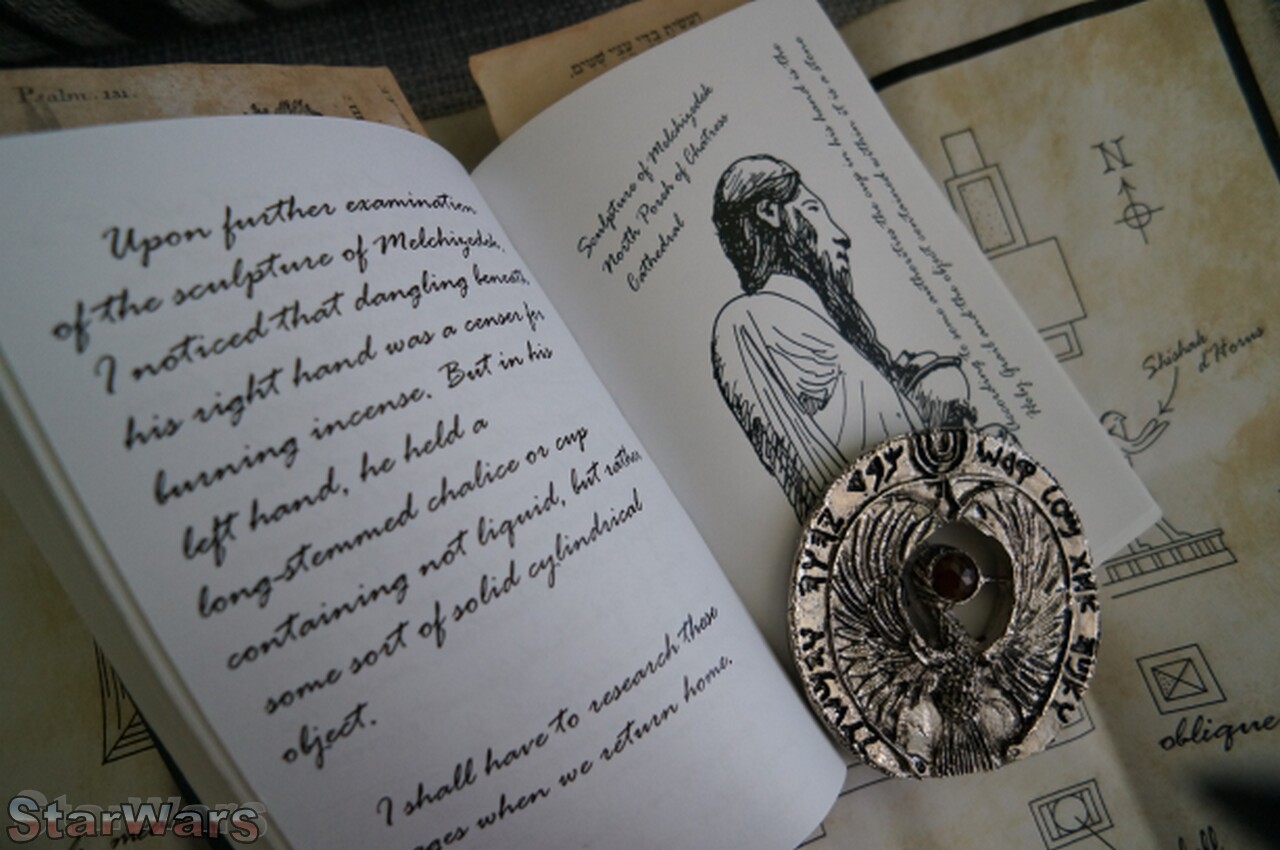 Psalm. 131.
ועשית בדי עצי שטים.
Upon further examination
of the sculpture of Melchizedek,
I noticed that dangling beneath
his right hand was a censer for
burning incense. But in his
left hand, he held a
long-stemmed chalice or cup
containing not liquid, but rather
some sort of solid cylindrical
object.
I shall have to research these
when we return home.
Sculpture of Melchizedek
North Porsh of Chatress
Cathedral
According to some authorities the cup in his hand is the
Holy Grail and the object contained within it is a stone
N
Shishak
d'Horus
oblique
StarWars